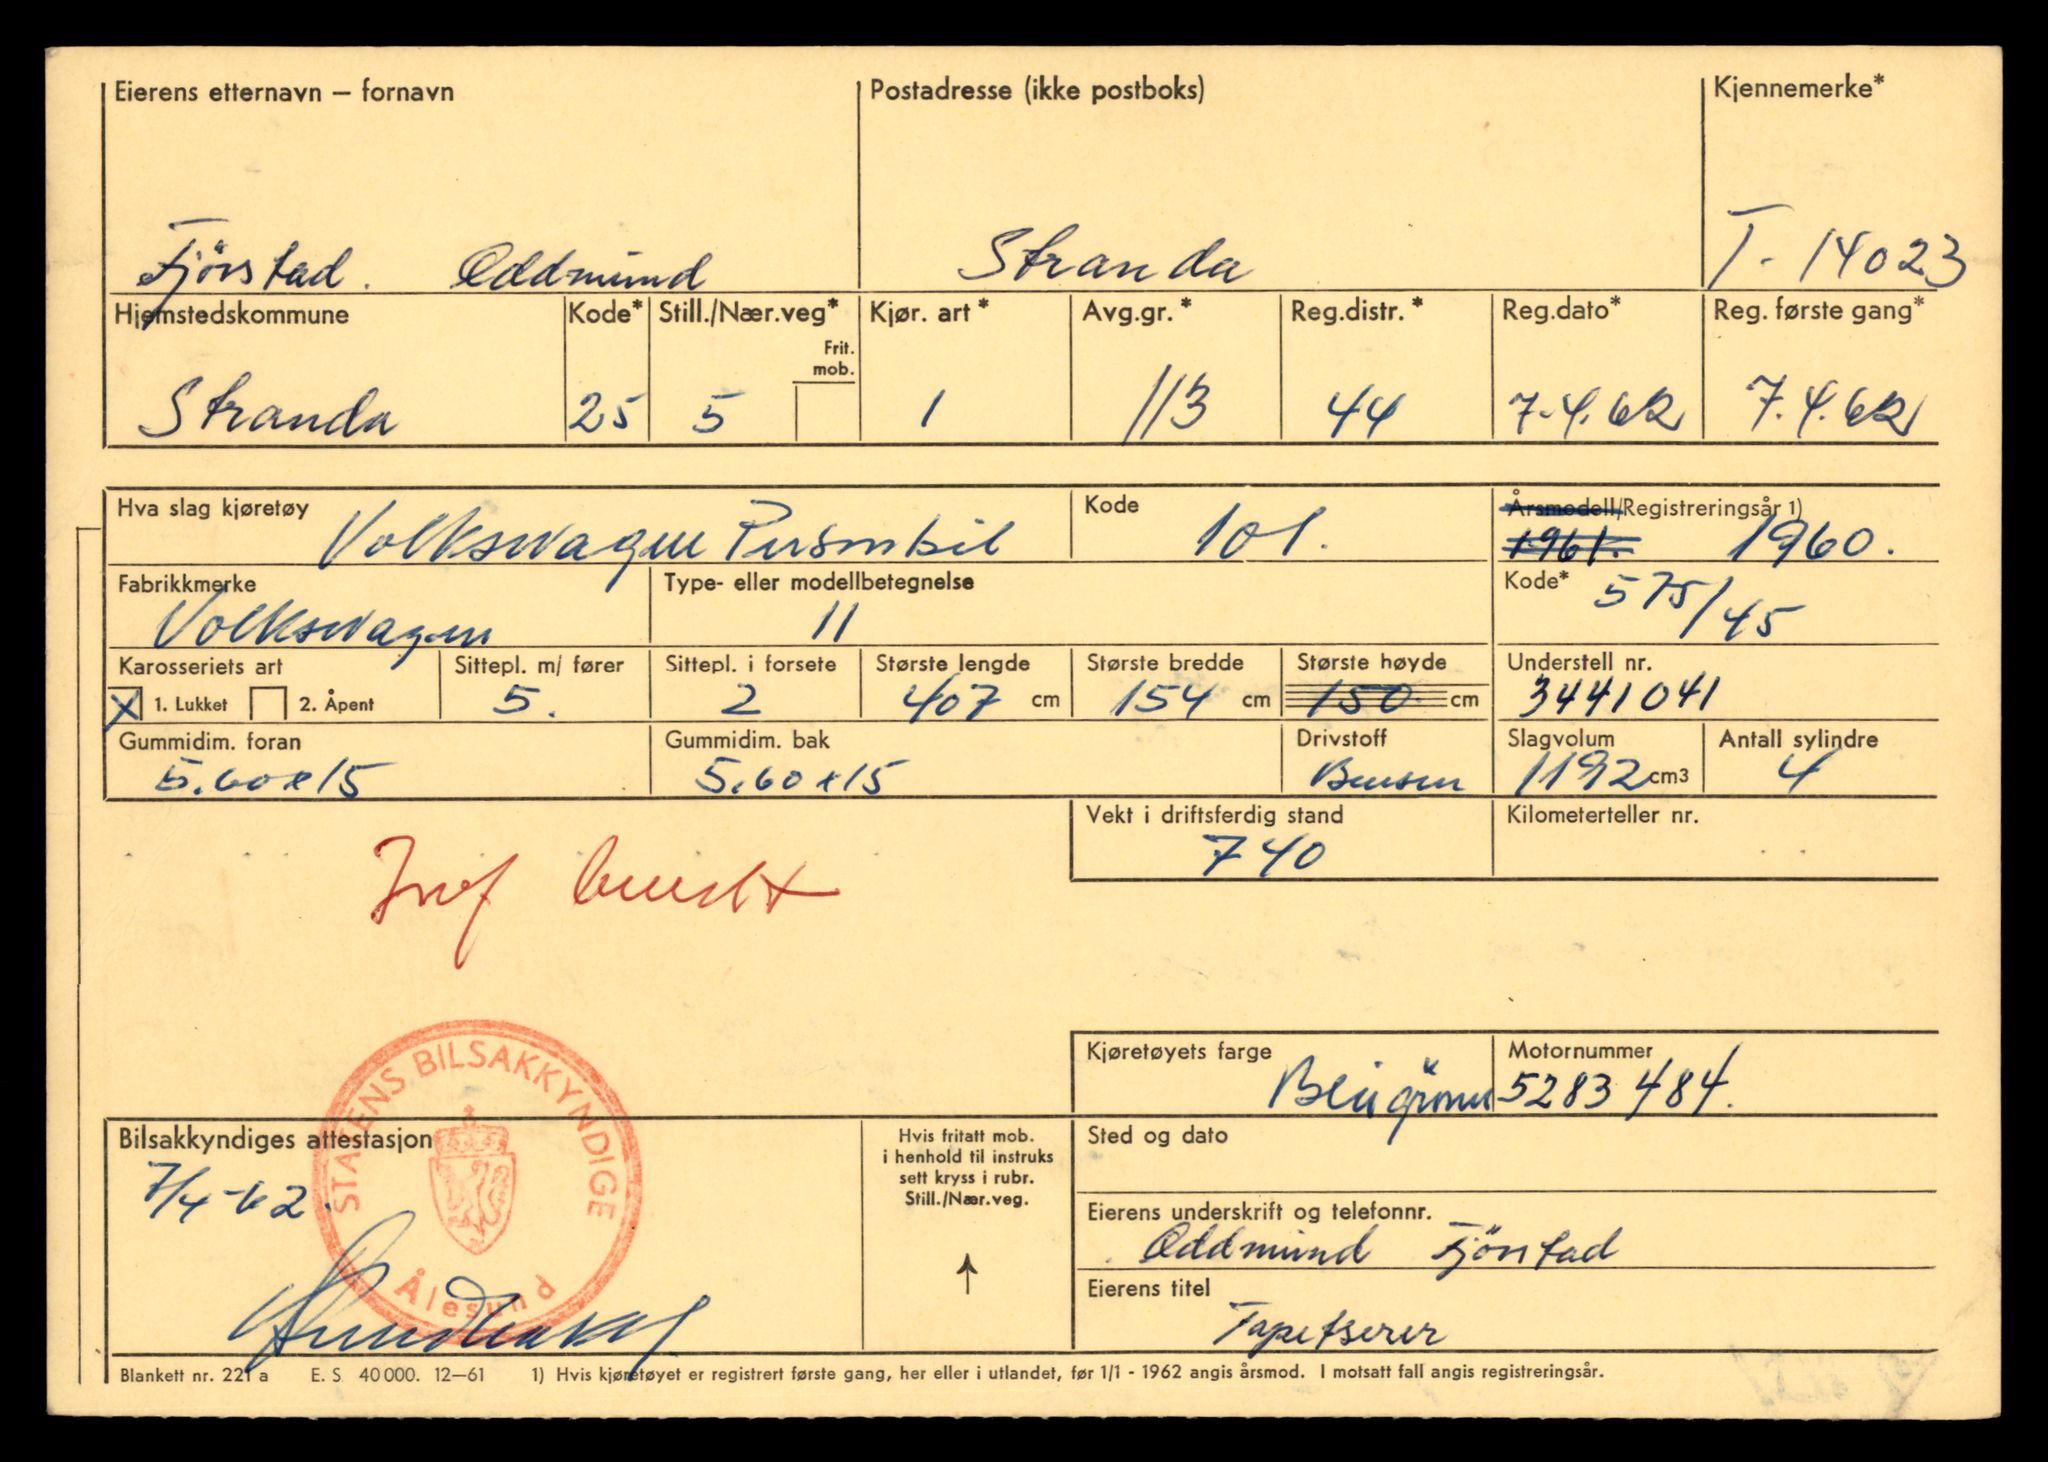 Eierens etternavn – fornavn Postadresse (ikke postboks) Kjennemerke*
Fjörstad. Oddmund Stranda T-14023
Hjemstedskommune Kode* Still./Nær.veg* Kjør. art* Avg.gr.* Reg.distr.* Reg.dato* Reg. første gang*
Frit.
mob.
Stranda 25 5 1 113 44 7.4.62 7.4.62
Hva slag kjøretøy Volkswagen Personbil Kode 101. Årsmodell/Registreringsår 1)
1961. 1960.
Fabrikkmerke Type- eller modellbetegnelse Kode* 575/45
Volkswagen 11
Karosseriets art Sittepl. m/ fører Sittepl. i forsete Største lengde Største bredde Største høyde Understell nr.
X 1. Lukket 2. Åpent 5. 2 407 cm 154 cm 150 cm 3441041
Gummidim. foran Gummidim. bak Drivstoff Slagvolum Antall sylindre
5.60x15 5.60x15 Bensin 1192 cm3 4
Vekt i driftsferdig stand Kilometerteller nr.
740
Innf brukt
Kjøretøyets farge Motornummer
5283484.
STATENS BILSAKKYNDIGE
Ålesund
Bilsakkyndiges attestasjon
7/4-62.
Hvis fritatt mob.
i henhold til instruks
sett kryss i rubr.
Still./Nær.veg.
↑
Sted og dato
Eierens underskrift og telefonnr.
Oddmund Fjörstad
Eierens titel
Tapetserer
Blankett nr. 221 a E. S 40 000. 12–61 1) Hvis kjøretøyet er registrert første gang, her eller i utlandet, før 1/1 - 1962 angis årsmod. I motsatt fall angis registreringsår.